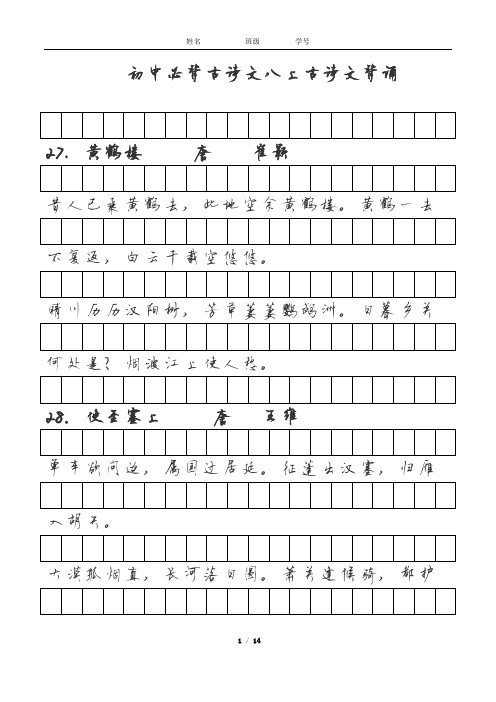 姓名 班级 学号
初中必背古诗文八上古诗文背诵
27. 黄鹤楼 唐 崔颢
昔人已乘黄鹤去，此地空余黄鹤楼。黄鹤一去
不复返，白云千载空悠悠。
晴川历历汉阳树，芳草萋萋鹦鹉洲。日暮乡关
何处是？烟波江上使人愁。
28. 使至塞上 唐 王维
单车欲问边，属国过居延。征蓬出汉塞，归雁
入胡天。
大漠孤烟直，长河落日圆。萧关逢候骑，都护
1 / 14